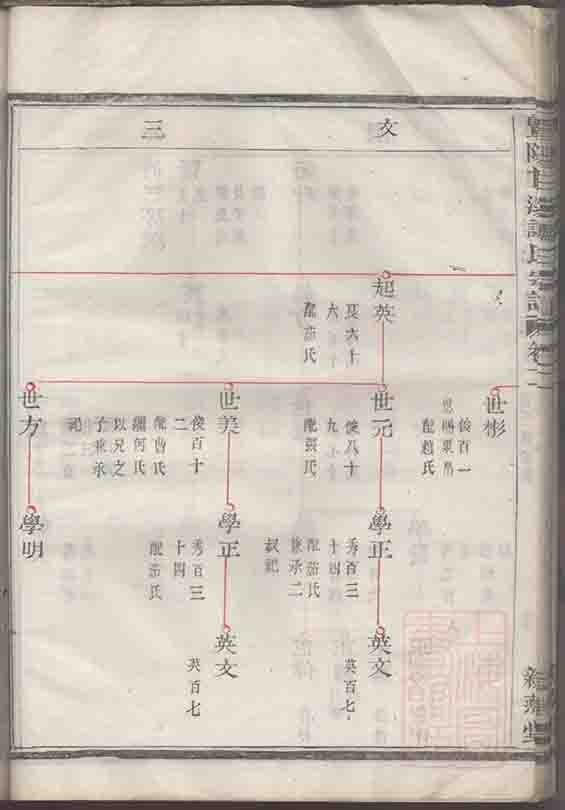 文
三
世彬
俊百一
恩賜粟帛
配趙氏
起英
良六十
六
配茹氏
世元
俊八十
九
配張氏
學正
秀百三
十四
配茹氏
兼承二
叔祀
英文
英百七
世美
俊百十
二
配曾氏
繼何氏
以兄之
子兼承
祀
學正
秀百三
十四
配茹氏
英文
英百七
世方
學明